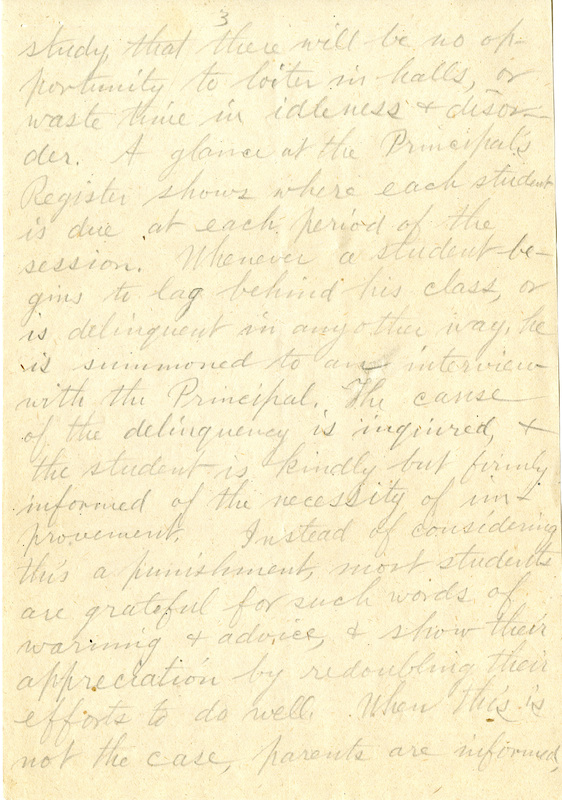 3
study, that there will be no op-
portunity to loiter in halls, or
waste time in idleness & disor-
der. A glance at the Principal's
Register shows where each student
is due at each period of the
session. Whenever a student be-
gins to lag behind his class, or
is delinquent in any other way, he
is summoned to an interview
with the Principal. The cause
of the delinquency is inquired, &
the student is kindly but firmly
informed of the necessity of im-
provement. Instead of considering
this a punishment, most students
are grateful for such words of
warning & advice, & show their
appreciation by redoubling their
efforts to do well. When this is
not the case, parents are informed,